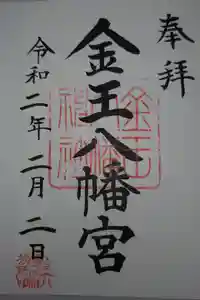 奉拝
金王八幡宮
令和二年二月二日